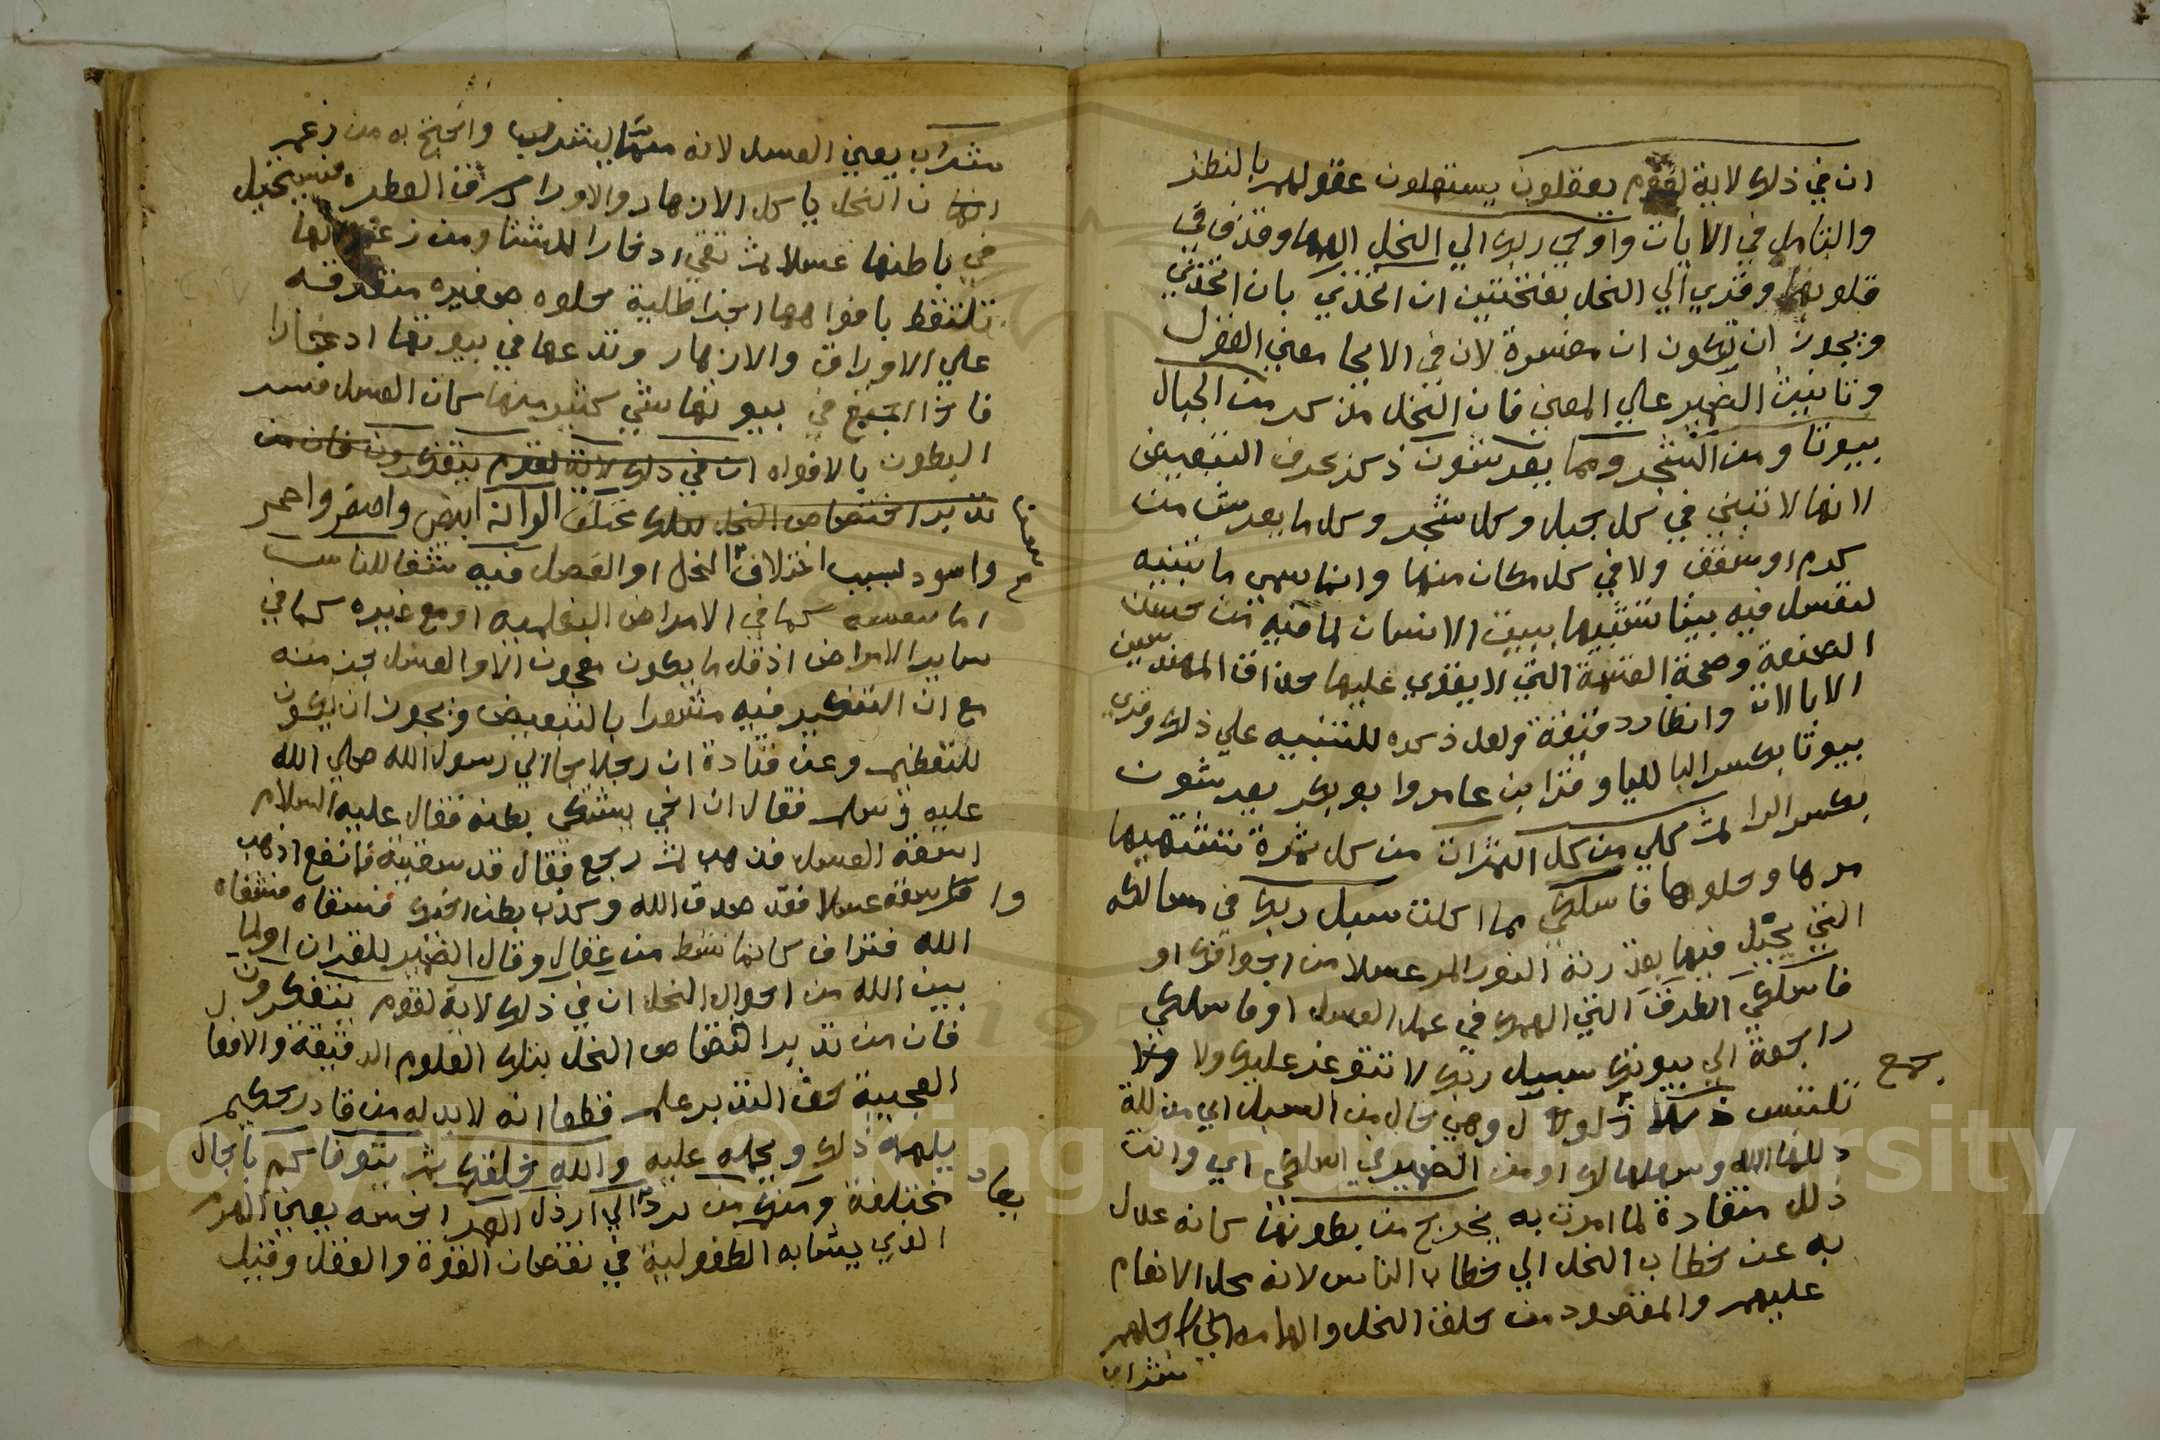 ان في ذلك لاية لقوم يعقلون يستعملون عقولهم بالنظر
والتامل في الايات واوحي ربك الي النحل الهمها وقذف في
قلوبها وقري الي النحل بفتحتين ان اتخذي بان اتخذي
ويجوز ان تكون ان مفسرة لان في الايحا معني القول
وتانيث الضمير علي المعني فان النحل مذكر من الجبال
بيوتا ومن الشجر ومما يعرشون ذكر بحرف التبعيض
لانها لا تبني في كل جبل وكل شجر وكل ما يعرش من
كرم او سقف ولا في كل مكان منها وانما سمي ما تبنيه
لتعسل فيه بيتا تشبيها ببيت الانسان لما فيه من حسن
الصنعة وصحة القسمة التي لا يقوي عليها حذاق المهندسين
الا بالات وانظار دقيقة ولعل ذكره للتنبيه علي ذلك وقري
بيوتا بكسر البا لليا وقرا ابن عامر وابو بكر يعرشون
بكسر الرا ثم كلي من كل الثمرات من كل ثمرة تشتهيها
مرها وحلوها فاسلكي ما اكلت سبل ربك في مسالكه
التي يحيل فيها بقدرته النور المر عسلا من اجوافك او
فاسلكي الطرق التي الهمك في عمل العسل او فاسلكي
راجعة الي بيوتك سبل ربك لا تتوعر عليك ولا
تلتبس ذللا ذلول وهي حال من السبل اي مذللة
ذللها الله وسهلها لك او من الضمير في اسلكي اي وانت
ذلل منقادة لما امرت به يخرج من بطونها كانه عدل
به عن خطاب النحل الي خطاب الناس لانه محل الانعام
عليهم والمقصود من خلق النحل والهامه لاجلهم
شراب
جمع
شراب يعني العسل لانه مما يشرب واحتج به من زعم
ان النحل ياكل الازهار والاوراق العطرة فيستحيل
في باطنها عسلا ثم تقي ادخارا للشتا ومن زعم انها
تلتقط بافواهها اجزا طلية حلوه صغيره متفرقه
علي الاوراق والازهار وتدعها في بيوتها ادخارا
فاذا اجتمع في بيوتها شي كثير منها كان العسل فسر
البطون بالافواه ان في ذلك لاية لقوم يتفكرون فان من
تدبر اختصاص النحل بتلك مختلف الوانه ابيض واصفر واحمر
واسود بسبب اختلاف النحل او الفصل فيه شفا للناس
اما بنفسه كما في الامراض البلغميه او مع غيره كما في
ساير الامراض اذ قل ما يكون معجون الا والعسل جز منه
مع ان التنكير فيه مشعرا بالتبعيض ويجوز ان يكون
للتعظيم وعن قتادة ان رجلا جا الي رسول الله صلي الله
عليه وسلم فقال ان اخي يشتكي بطنه فقال عليه السلام
اسقه العسل فذهب ثم رجع فقال قد سقيته فما نفع اذهب
واسقه عسلا فقد صدق الله وكذب بطن اخيك فسقاه فشفاه
الله فبرا كانما نشط من عقال وقال الضمير للقران او لما
بين الله من احوال النحل ان في ذلك لاية لقوم يتفكرون
فان من تدبر اختصاص النحل بتلك العلوم الدقيقة والافعال
العجيبة حق التدبر علم قطعا انه لا بد له من قادر حكيم
يلهمه ذلك ويحمله عليه والله خلقكم ثم يتوفاكم باجال
مختلفة ومنكم من يرد الي ارذل العمر اخسه يعني الهرم
الذي يشابه الطفولية في نقصان القوة والعقل وقيل
Copyright © King Saud University